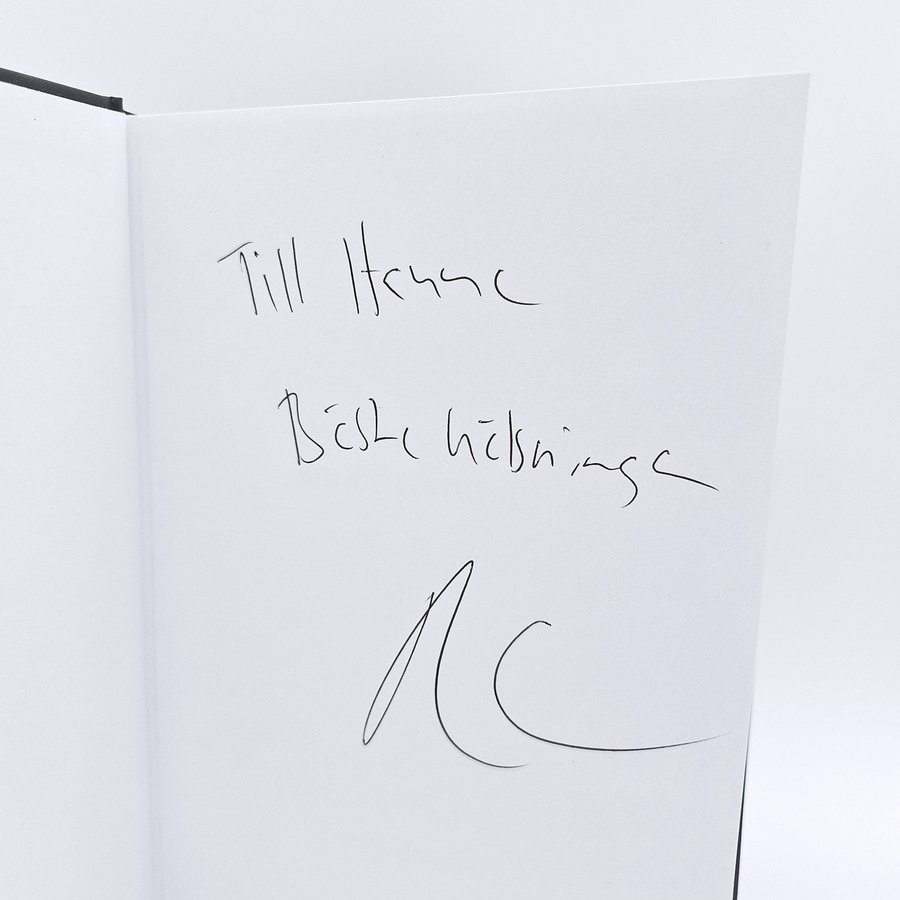 Till Hanne
Bästa hälsningar